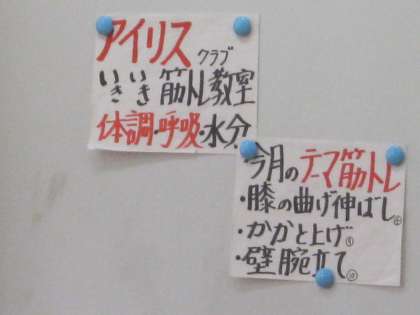 アイリスクラブ
いきいき筋トレ教室
体調・呼吸・水分
・今月のテーマ筋トレ
・膝の曲げ伸ばし
・かかと上げ
・壁腕立て